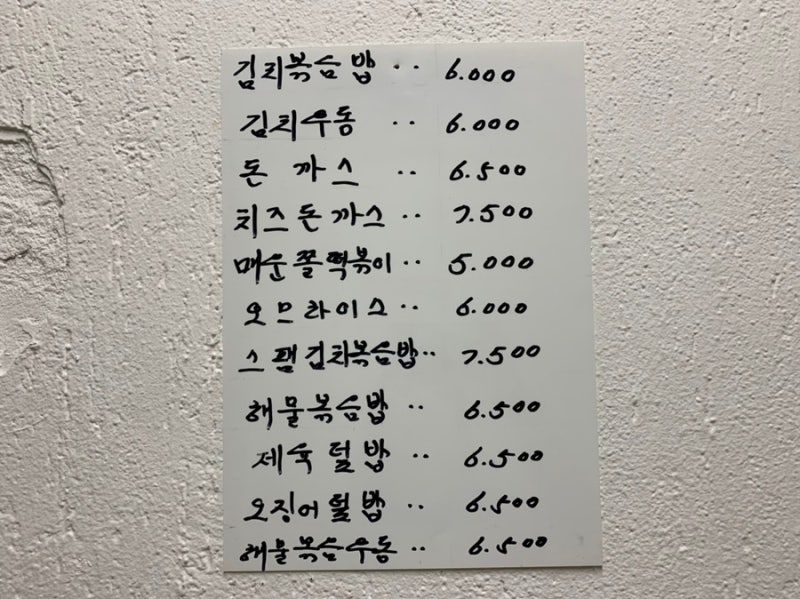 김치볶음밥 ·· 6.000
김치우동 ·· 6.000
돈 까스 ·· 6.500
치즈돈까스 ·· 7.500
매운쫄떡볶이 ·· 5.000
오므라이스 ·· 6.000
스팸김치볶음밥 ·· 7.500
해물볶음밥 ·· 6.500
제육덮밥 ·· 6.500
오징어덮밥 ·· 6.500
해물볶음우동 ·· 6.500